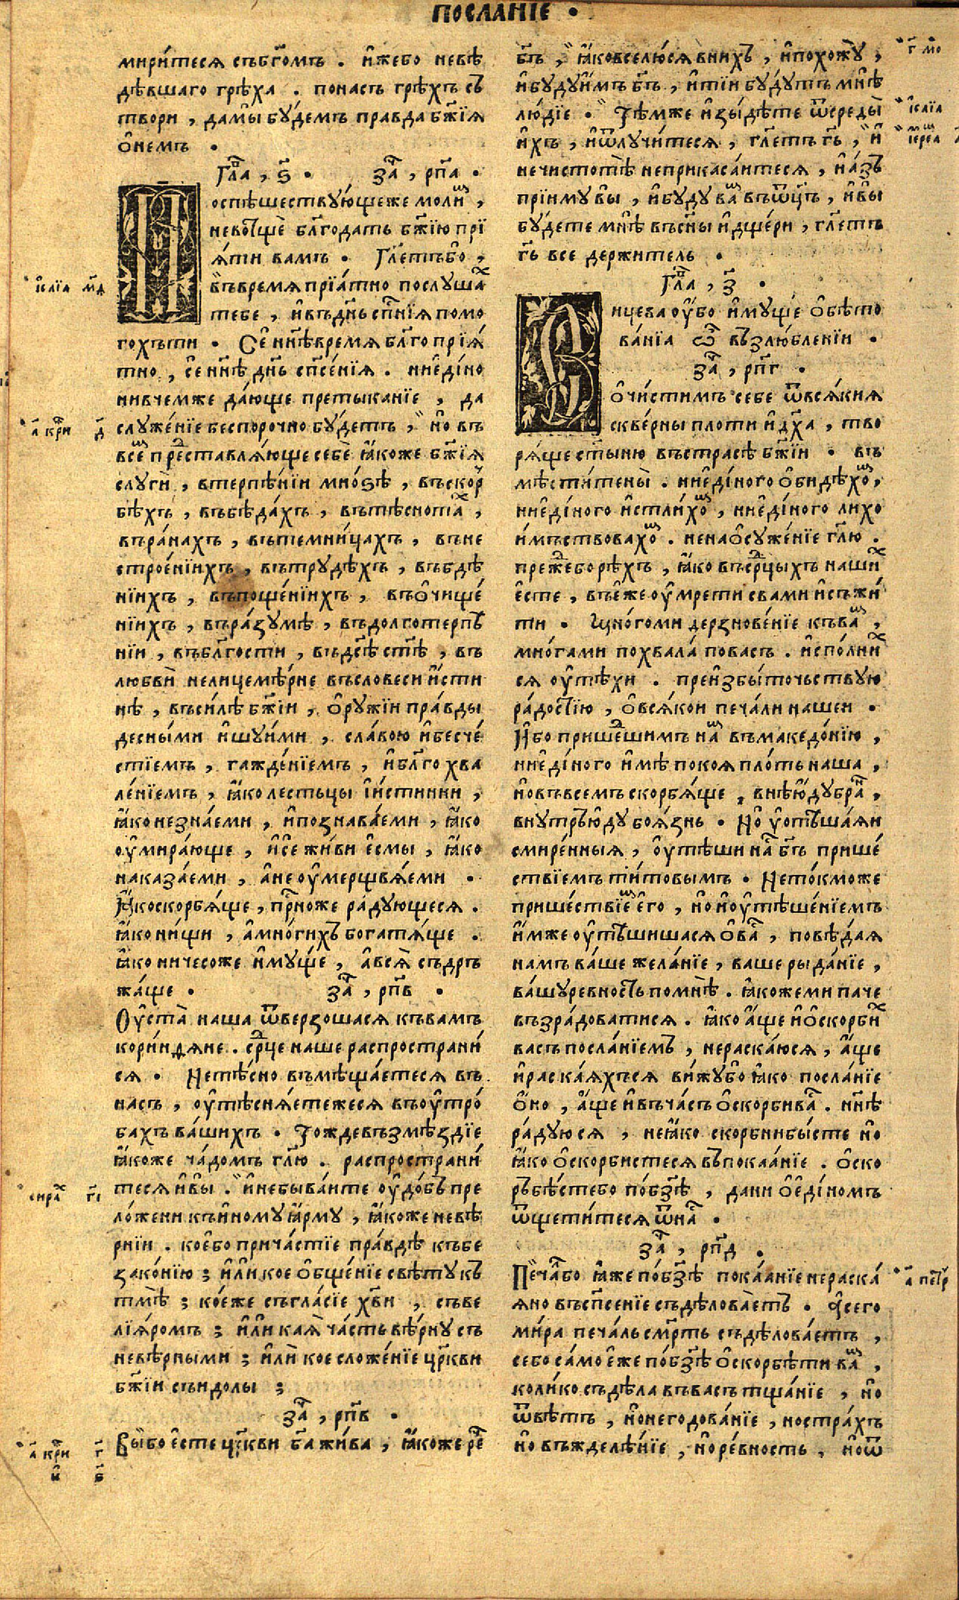 посланїе •
мирѝтеся съб҃гомъ . и҆жебо невѣ
дѣвшаго грѣха . понасъ грѣхъ съ
твори , дамы бу́демъ правда бж҃їя
ѡ҆немъ •
Гла҃ , ѕ҃ • за҃ , рп҃а •
Поспѣшествующеже моли́мъ ,
невотщѐ бл҃годать бж҃їю прї
я́ти вамъ • Гл҃етъбо ,
въвремя прїа́тно послуша́х
тебе , и҆въдн҃ь сп҃нїя помо
гохъти • Се́ нн҃ѣвремя бл҃го прїя́
тно , се́ нн҃ѣ дн҃ь сп҃се́нїя . ниеди́но
нивчемже да́юще претыканїе , да
служе́нїе беспорочно бу́детъ , но въ
все́мъ представля́юще себѐ ꙗ҆коже бж҃їя
слугѝ , втерпѣ́нїи мно́зѣ , въскор
бѣхъ , въбѣда́хъ , вътѣснота́х ,
въра́нахъ , вътемни́цахъ , въне
строе́нїихъ , вътрудѣ́хъ , въбдѣ
нїихъ , въпоще́нїихъ , въѡ҆чище́
нїихъ , въра́зумѣ , въдолготерпѣ
нїи , въбл҃гости , въдс҃ѣ ст҃ѣ , въ
любвѝ нелицемѣ́рне въсловеси и҆́сти
нѣ , въси́лѣ бж҃їи , ѻ҆ру́жїи пра́вды
десны́ми и҆шу́ими , сла́вою и҆бесче́
стїемъ , гажде́нїемъ , и҆бл҃го хва
ле́нїемъ , ꙗ҆ко лестьцы и҆и́стинни ,
ꙗ҆ко незна́еми , и҆познава́еми , ꙗ҆ко
оу҆мира́юще , и҆се́ жи́ви е҆смы , ꙗ҆ко
наказа́еми , а҆не оу҆мерщвля́еми •
ꙗ҆коскорбя́ще , прⷭ҇ноже ра́дующеся .
ꙗ҆ко ни́щи , а҆мно́гихъ богатя́ще .
ꙗ҆ко ничесоже и҆му́ще , а҆вся̀ съдръ
жа́ще • за҃ , рп҃в •
Оу҆ста̀ наша ѿверзошася къвамъ
кори́нѳяне . ср҃це наше распространи́
ся • Нетѣ́сно въмѣща́етеся въ
насъ , оу҆тѣсня́етежеся въоу҆тро́
бахъ ва́шихъ • Тождевъзмѣ́здїе
ꙗ҆коже ча́домъ гл҃ю . распространи́
теся и҆вы̀ . и҆небыва́ите оу҆до́бь пре
ло́жени къи҆ному ꙗ҆рму̀ , ꙗ҆коже невѣ́
рнїи . кое́бо прича́стїе пра́вдѣ къбе
зако́нїю ; и҆лѝ кое ѻ҆бще́нїе свѣ́ту къ
тмѣ̀ ; ко́еже съгла́сїе хв҃и , съве
лїя́ромъ ; и҆лѝ кая̀ ча́сть вѣ́рну съ
невѣ́рными ; и҆лѝ кое сложе́нїе цр҃кви
бж҃їи съи́долы ;
за҃ , рп҃в •
Выбо е҆сте цр҃кви ба҃ жи́ва , ꙗ҆коже рече
бг҃ъ , ꙗ҆ковселю́ся вни́хъ , и҆похожу̀ ,
и҆бу́дуи҆мъ бг҃ъ , и҆тїи бу́дутъ мнѣ̀
лю́дїе • Тѣ́мже и҆зы́дѣте ѿсреды̀
и҆хъ , и҆ѿлучи́теся , гл҃етъ гь҃ , и҆
нечистотѣ̀ неприкаса́итеся , и҆а́зъ
прїиму̀ вы , и҆бу́ду ва́мъ въѿц҃ъ , и҆вы
бу́дете мнѣ̀ въсны и҆дще́ри , гл҃етъ
гь҃ все держитель •
Гла҃ , з҃
Сицева оу҆бо и҆му́ще ѻ҆бѣто
ва́нїа ѿ възлюбленїи •
за҃ , рп҃г •
ѻ҆чи́стимъ себе ѿвся́кия
скве́рны плоти и҆дх҃а , тво
ря́ще ст҃ыню въстрасѣ бж҃їи • въ
мѣстите́ны . ниеди́ного ѻ҆бидѣхо́мъ ,
ниеди́ного и҆стли́хомъ , ниеди́ного лихо
и҆́мствовахомъ . ненаѻ҆суже́нїе гл҃ю .
прежебо рѣхъ , ꙗ҆ко въср҃цыхъ наши́х
е҆сте , въе҆́же оу҆мрети свами и҆съжи́
ти • Мно́гоми дерзнове́нїе къвамъ ,
мно́гами похвала̀ повасъ . и҆сполни́х
ся оу҆тѣ́хи . преизбы́точьствую
ра́достїю , ѻ҆всякои печа́ли нашеи •
И҆бо прише́дшимъ намъ въмакедо́нїю ,
ниеди́ного и҆мѣ поко́я пло́ть наша ,
но́въвсемъ скорбя́ще , внѣю́ду брани ,
внутрьюду боя́знь • Но оу҆тѣша́яи
смире́нныя , оу҆тѣши на́съ бг҃ъ прише́
ствїемъ ти́товымъ • Неток мо же
прише́ствїе его , но́ и҆оу҆тѣше́нїемъ
и҆́мже оу҆тѣшишася ѻ҆васъ , повѣ́дая
намъ ва́ше желанїе , ваше рыда́нїе ,
ва́шуре́вность помнѣ . ꙗ҆кожеми паче
възра́доватися . ꙗ҆ко а҆́ще и҆ѻ҆скорби́х
васъ посла́нїемъ , нераска́юся , а҆́ще
и҆раская́хъся вижу́бо ꙗ҆ко посла́нїе
ѻ҆но , а҆́ще и҆въча́съ ѻ҆скорбива́съ . нн҃ѣ
ра́дуюся , неꙗ҆ко скорбнибы́сте но
ꙗ҆ко ѻ҆скорбистеся въпокаа́нїе . ѻ҆ско
рьбѣ́стебо побз҃ѣ , дани ѻ҆еди́номъ
ѿщети́теся ѿна́съ •
за҃ , рп҃д •
Печа́лбо ꙗ҆́же побз҃ѣ покаа́нїе нераска́
яно въсп҃сенїе съдѣлова́етъ . а҆сего
ми́ра печа́льсмр҃ть съдѣлова́етъ ,
себо са́мо е҆́же побз҃ѣ ѻ҆скорбѣ́ти ва́мъ ,
коли́ко съдѣ́ла въва́съ тща́нїе , но
ѿвѣ́тъ , но́негодова́нїе , ностра́хъ
но въжделѣ́нїе , но́ре́вность , но́ѿ
і҆са́їа мѳ
а҃ кор҃и д҃
сира́х гі҃
а҃ кор҃и г҃
и҆ ѕ҃
г҃ мо
і҆са́їа
і҆ереа
а҃ петр